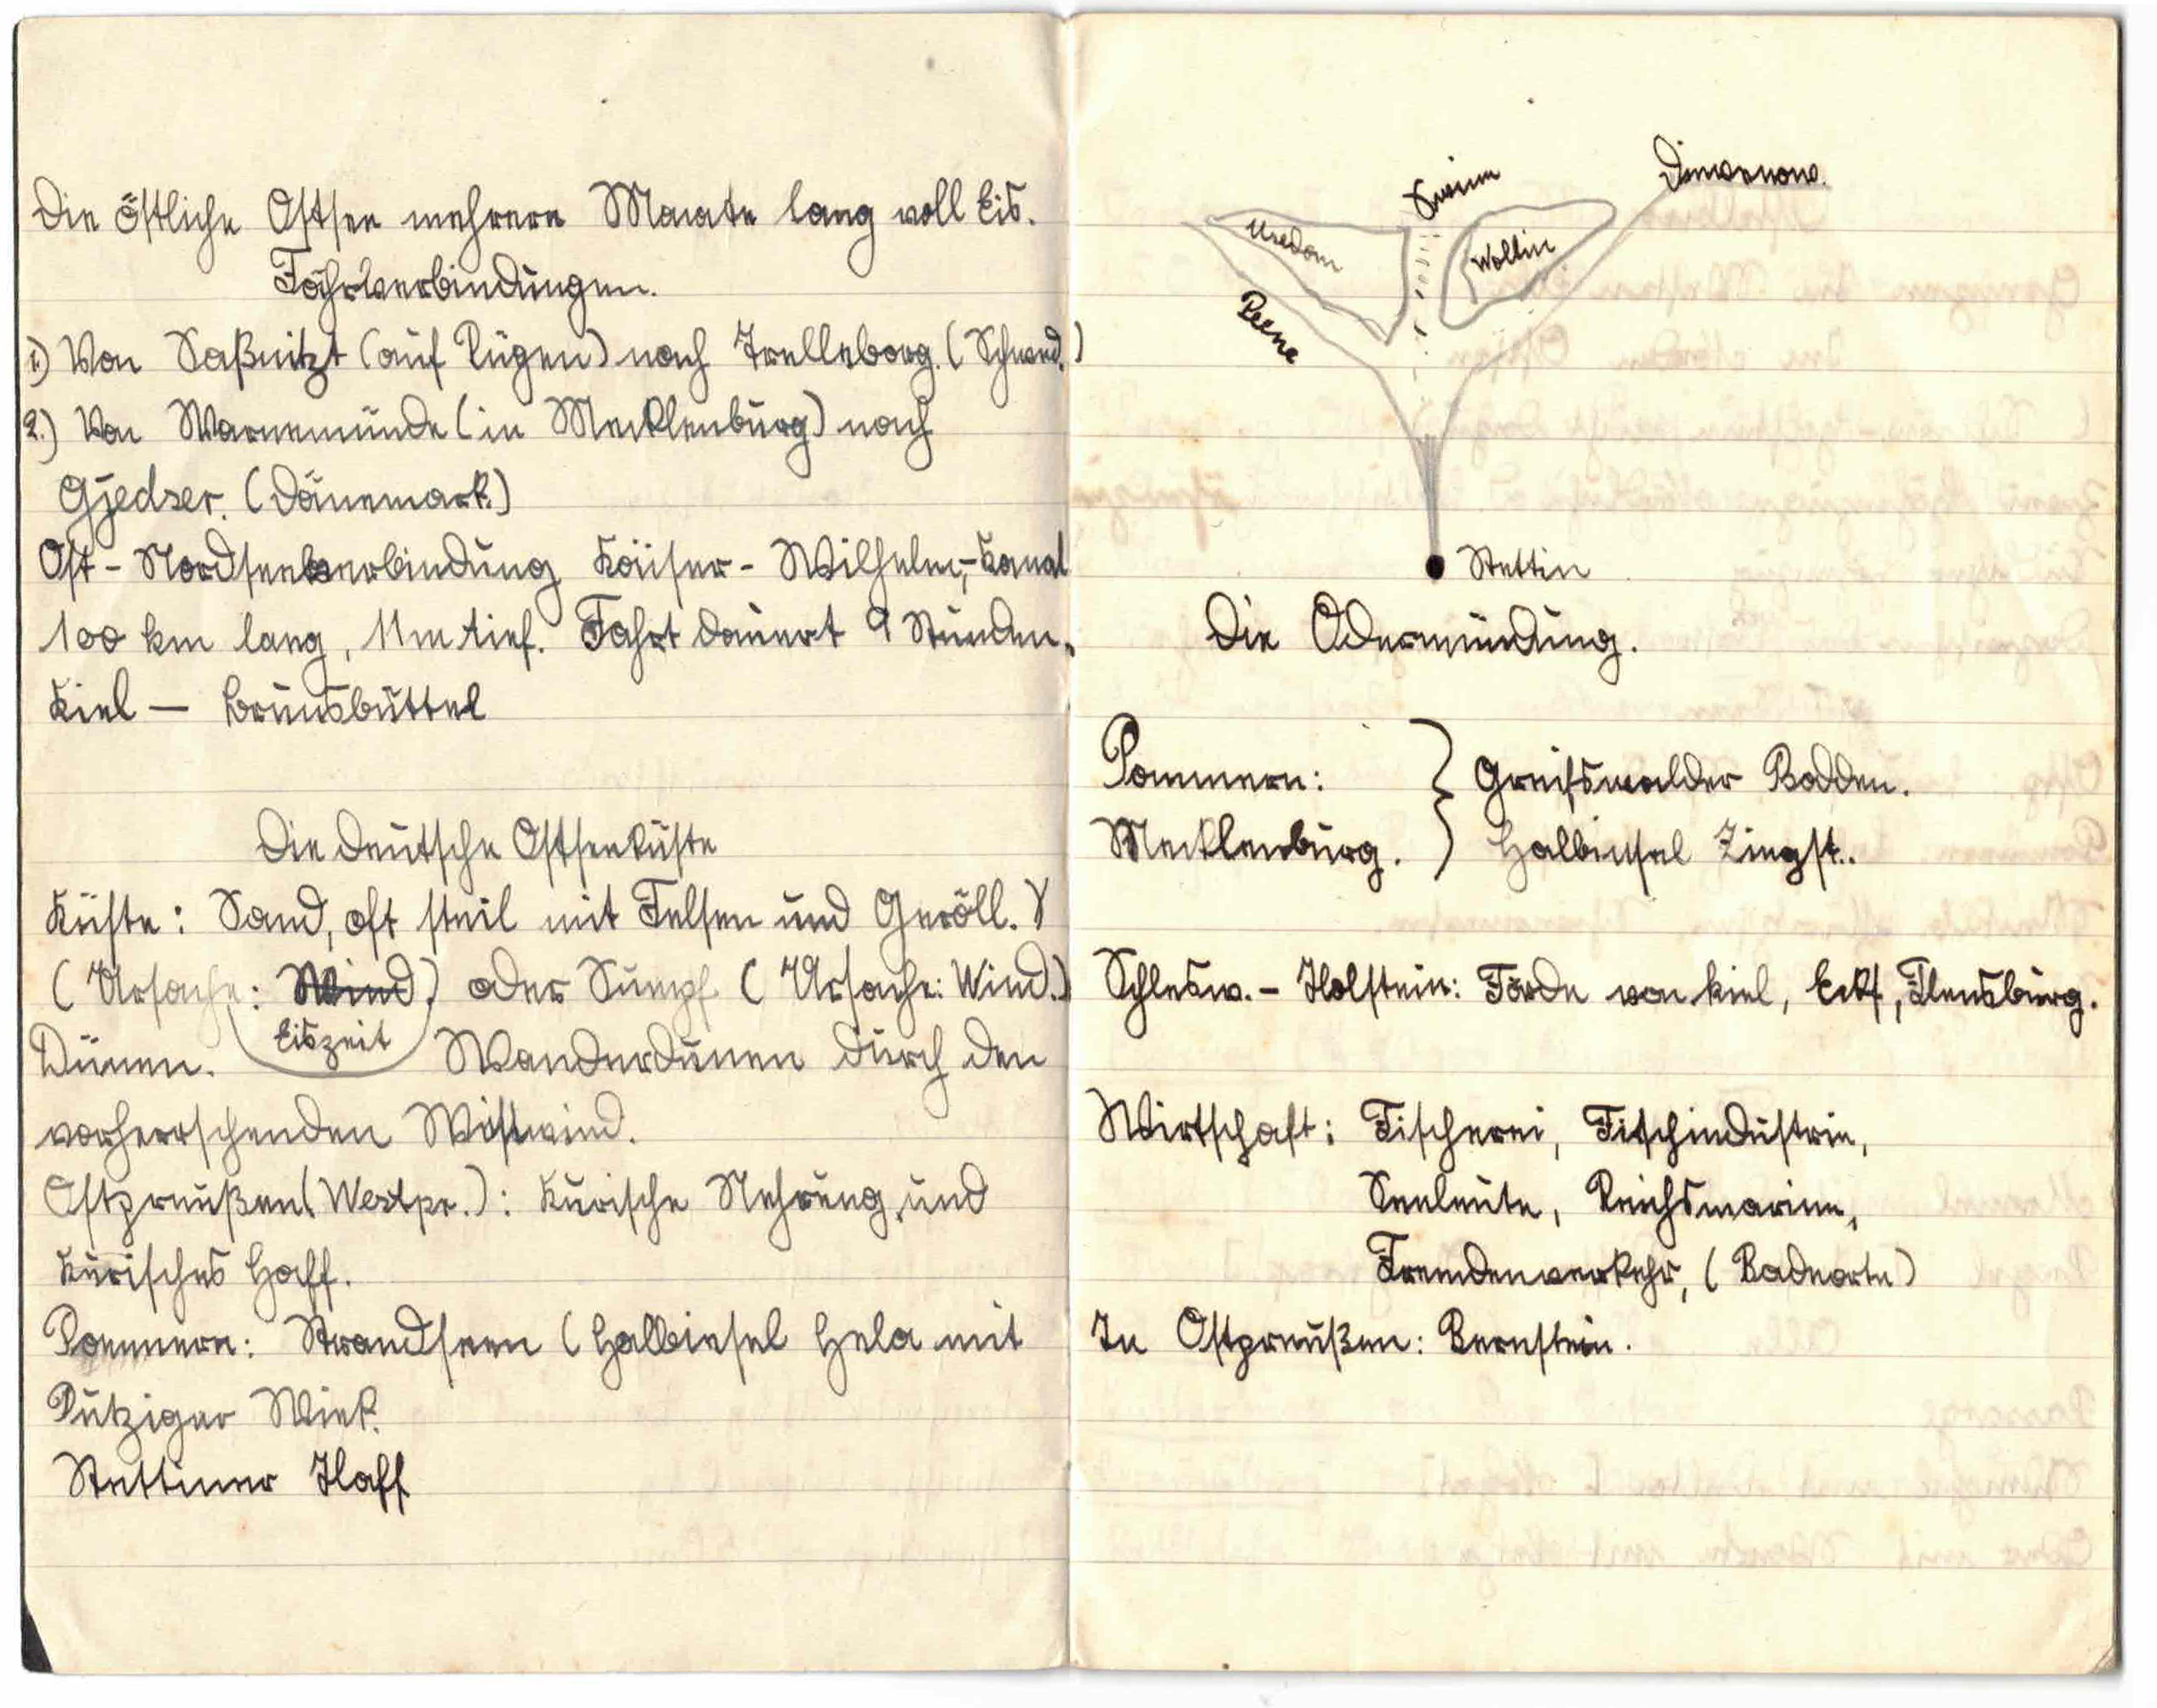 Die östliche Ostsee mehrere Monate lang voll Eis.
Fährverbindungen.
1.) Von Saßnitzt (auf Rügen) nach Trelleborg. (Schwed.)
2.) Von Warnemünde (in Mecklenburg) nach
Gjedser. (Dänemark.)
Ost-Nordseeverbindung Kaiser-Wilhelm-Kanal
100 km lang, 11m tief. Fahrt dauert 9 Stunden.
Kiel — Brunsbüttel
Die deutsche Ostseeküste
Küste: Sand, oft steil mit Felsen und Geröll.
(Ursache: Wind) oder Sumpf (Ursache: Wind.)
Eiszeit
Dünen. Wanderdünen durch den
vorherrschenden Westwind.
Ostpreußen (Westpr.): Kurische Nehrung und
Kurisches Haff.
Pommern: Strandseen (Halbinsel Hela mit
Putziger Wiek.
Stettiner Haff
Swine
Diewenow.
Usedom
Wollin
Peene
Stettin
Die Odermündung.
Pommern: } Greifswalder Bodden.
Mecklenburg. } Halbinsel Zingst.
Schlesw.-Holstein: Förde von Kiel, Eckf, Flensburg.
Wirtschaft: Fischerei, Fischindustrie,
Seeleute, Reichsmarine,
Fremdenverkehr, (Badeorte)
In Ostpreußen: Bernstein.